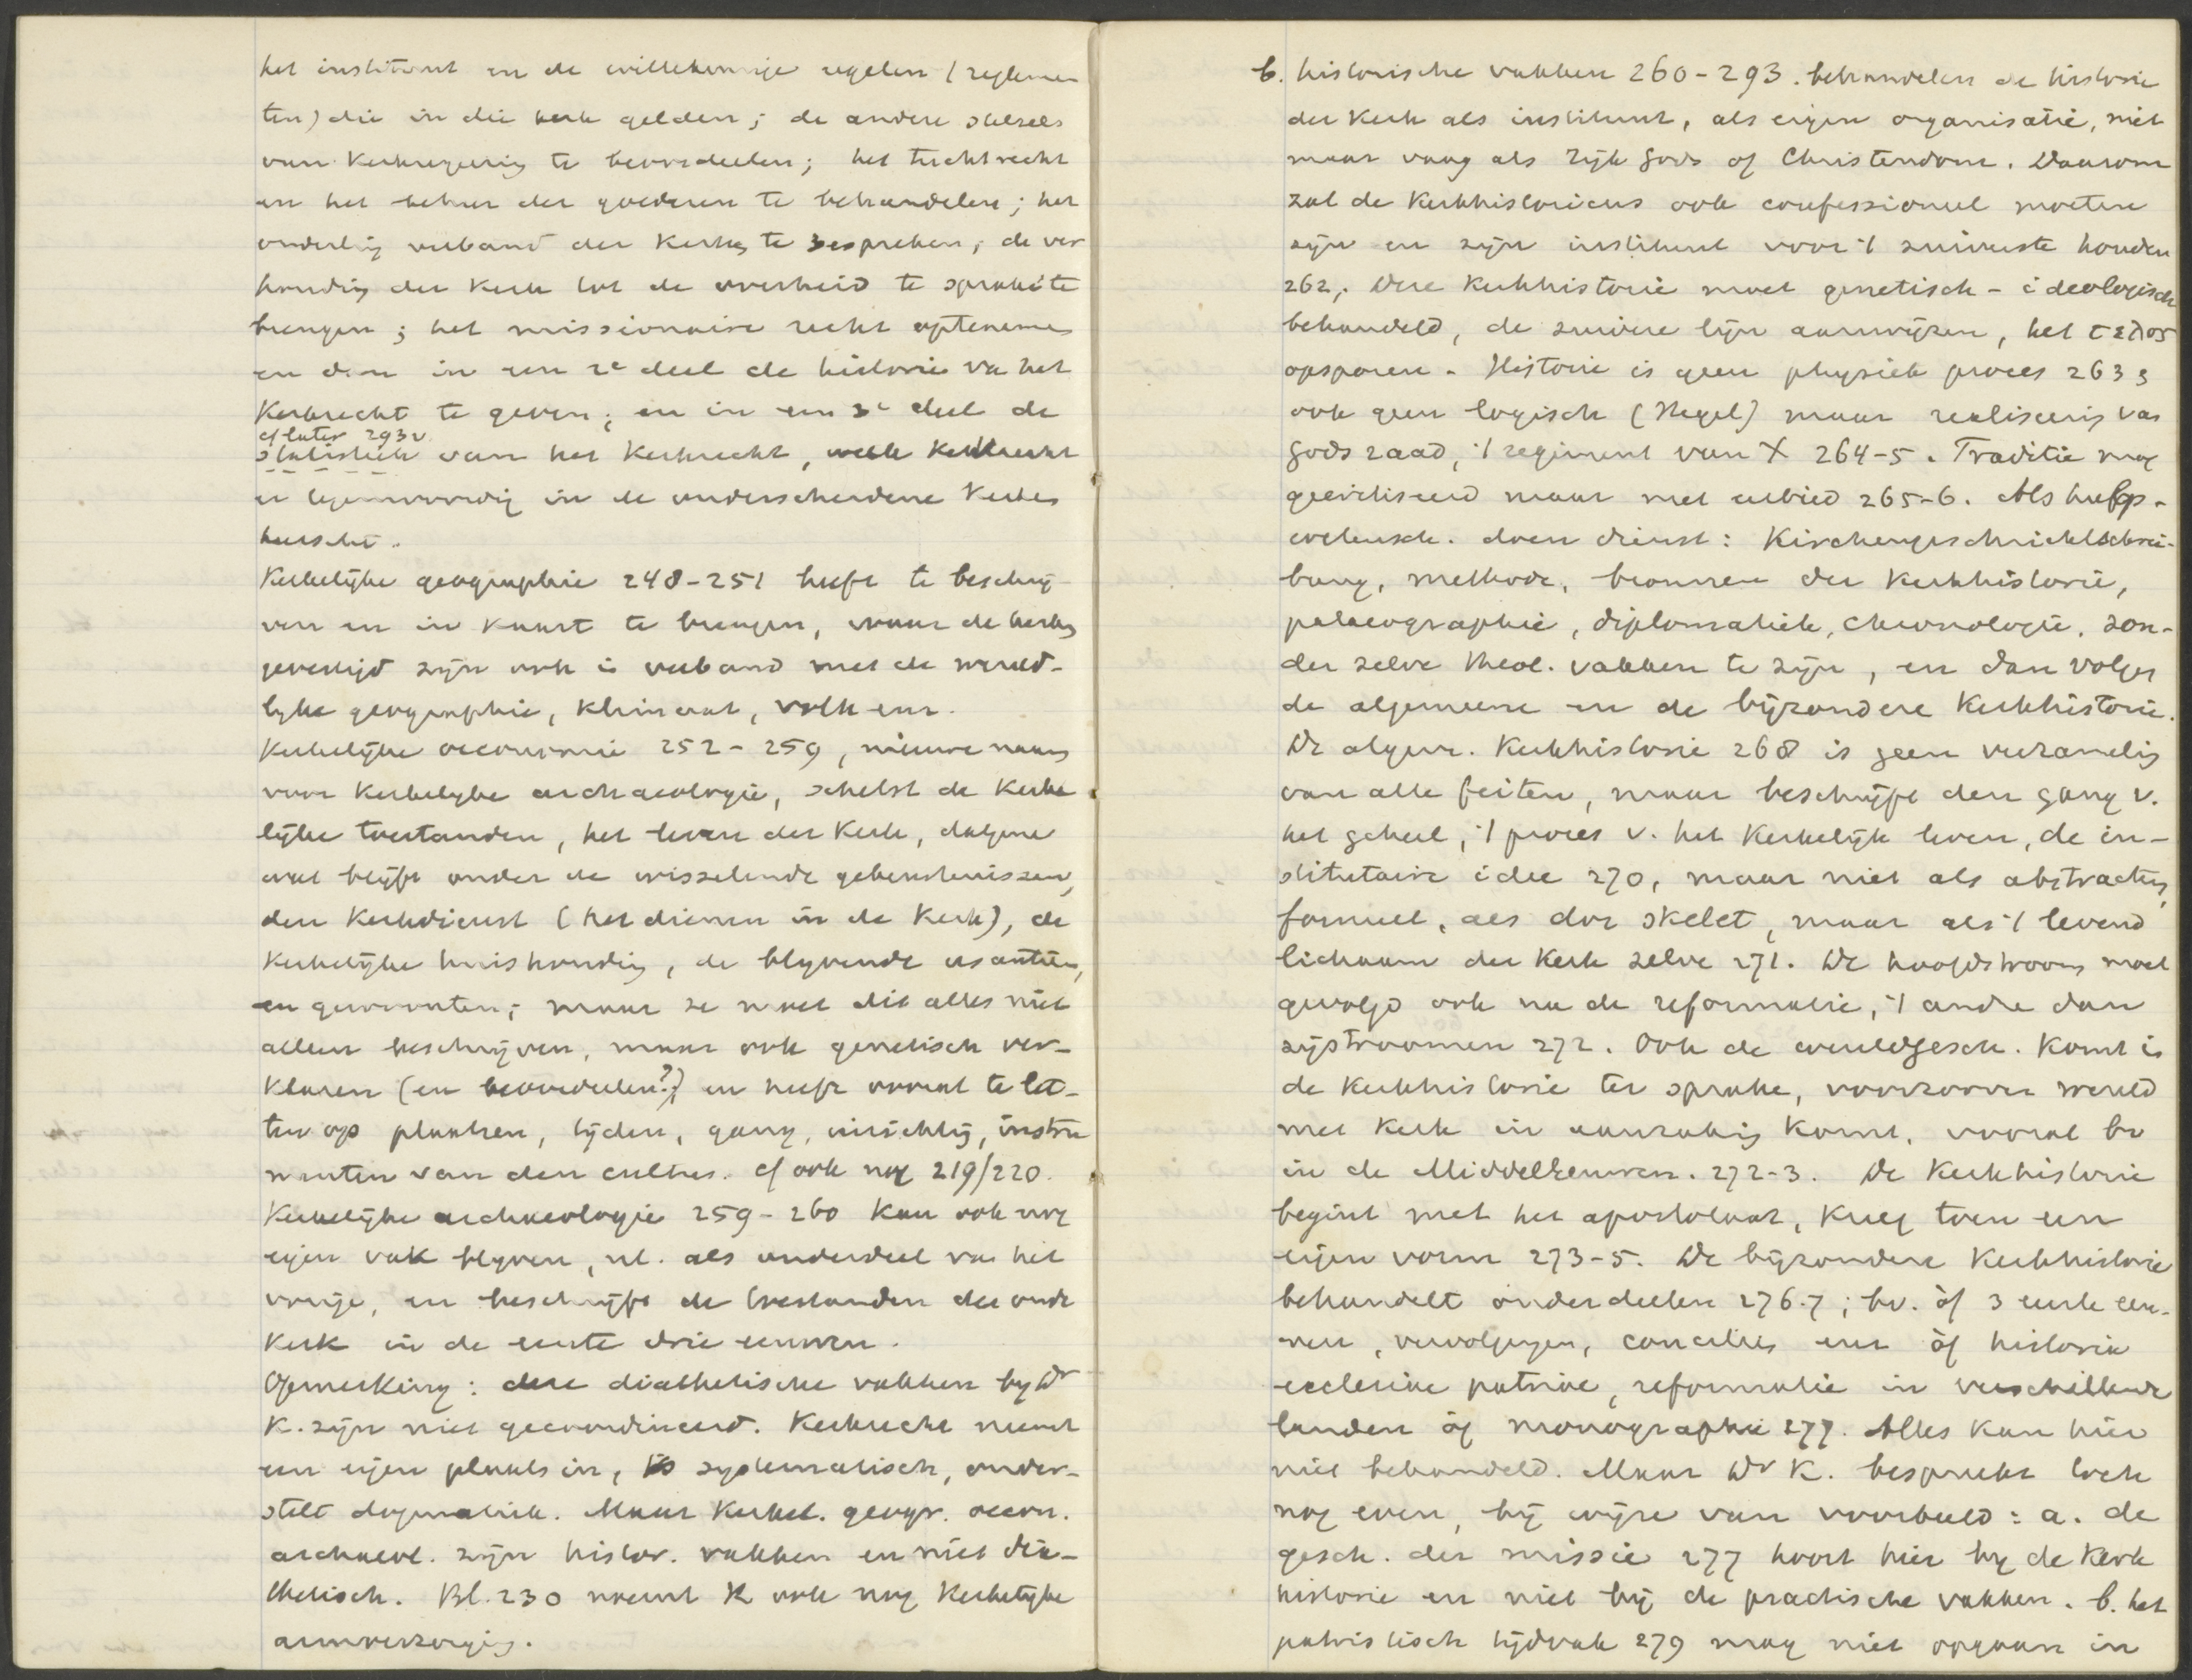 het instituut en de willekeurige regelen (reglemen
ten) die in die kerk gelden; de andere stelsels
van Kerkregeering te beoordeelen; het tuchtrecht
en het beheer der goederen te behandelen; het
onderling verband der Kerken te bespreken; de ver
houding der Kerk tot de overheid te sprake te
brengen; het missionaire recht optenemen
en dan in een 2e deel de historie van het
Kerkrecht te geven; en in een 3e deel de
cf later 293v
statistiek van het Kerkrecht, welk Kerkrecht
er tegenwoordig in de onderscheidene Kerken
heerscht.
Kerkelijke geographie 248-251 heeft te beschrij-
ven en in kaart te brengen, waar de kerken
gevestigd zijn ook in verband met de wereld-
lijke geographie, klimaat, volk enz.
Kerkelijke oeconomie 252-259, nieuwe naam
voor Kerkelijke archaeologie, schetst de Kerke
lijke toestanden, het leven der Kerk, datgene
wat blijft onder de wisselende gebeurtenissen,
den Kerkdienst (het dienen in de Kerk), de
Kerkelijke huishouding, de blyvende usantiën,
en gewoonten; maar ze moet dit alles niet
alleen beschrijven, maar ook genetisch ver-
klaren (en beoordeelen?) en heeft vooral te let-
ten op plaatsen, tijden, gang, inrichting, instru
menten van den cultus. cf ook nog 219/220.
Kerkelijke archaeologie 259-260 kan ook nog
eigen vak blyven, nl. als onderdeel van het
vorige, en beschrijft de toestanden der oude
Kerk in de eerste drie eeuwen.
Opmerking: deze diathetische vakken by Dr
K. zijn niet gecoordineerd. Kerkrecht neemt
een eigen plaats in, is systematisch, onder-
stelt dogmatiek. Maar Kerkel. geogr. oecon.
archaeol. zijn histor. vakken en niet dia-
thetisch. Bl. 230 noemt K ook nog Kerkelijke
armverzorging.
b. historische vakken 260-293. behandelen de historie
der Kerk als instituut, als eigen organisatie, niet
maar vaag als Rijk Gods of Christendom. Daarom
zal de Kerkhistoricus ook confessioneel moeten
zijn en zijn instituut voor 't zuiverste houden
262, Deze Kerkhistorie moet genetisch-ideologisch
behandeld, de zuivere lijn aanwijzen, het τελος
opsporen. Historie is geen physiek proces 263;
ook geen logisch (Hegel) maar realiseering van
Gods raad, 't regiment van X 264-5. Traditie mag
gecritiseerd maar met eerbied 265-6. Als hulp-
wetensch. doen dienst: Kirchengeschichtschrei-
bung, methode, bronnen der Kerkhistorie,
palaeographie, diplomatiek, chronologie, zon-
der zelve theol. vakken te zijn, en dan volgen
de algemeene en de bijzondere Kerkhistorie.
De algem. Kerkhistorie 268 is geen verzameling
van alle feiten, maar beschrijft den gang v.
het geheel, 't proces v. het Kerkelijk leven, de in-
stitutaire idee 270, maar niet als abstractum,
formeel, als dor skelet, maar als 't levend
lichaam der Kerk zelve 271. De hoofdstroom moet
gevolgd ook na de reformatie, 't andre dan
zijstroomen 272. Ook de wereldgesch. komt in
de Kerkhistorie ter sprake, voorzoover wereld
met Kerk in aanraking komt, vooral bv
in de Middeleeuwen. 272-3. De Kerkhistorie
begint met het apostolaat, kreeg toen een
eigen vorm 273-5. De bijzondere Kerkhistorie
behandelt onderdeelen 276.7; bv. òf 3 eerste eeu-
wen, vervolgingen, conciliën enz òf historia
ecclesiae patriae, reformatie in verschillende
landen òf monographie 277. Alles kan hier
niet behandeld. Maar Dr K. bespreekt toch
nog even, bij wijze van voorbeeld: a. de
gesch. der missie 277 hoort hier by de Kerk
historie en niet bij de practische vakken. b. het
patristisch tijdvak 279 mag niet opgaan in